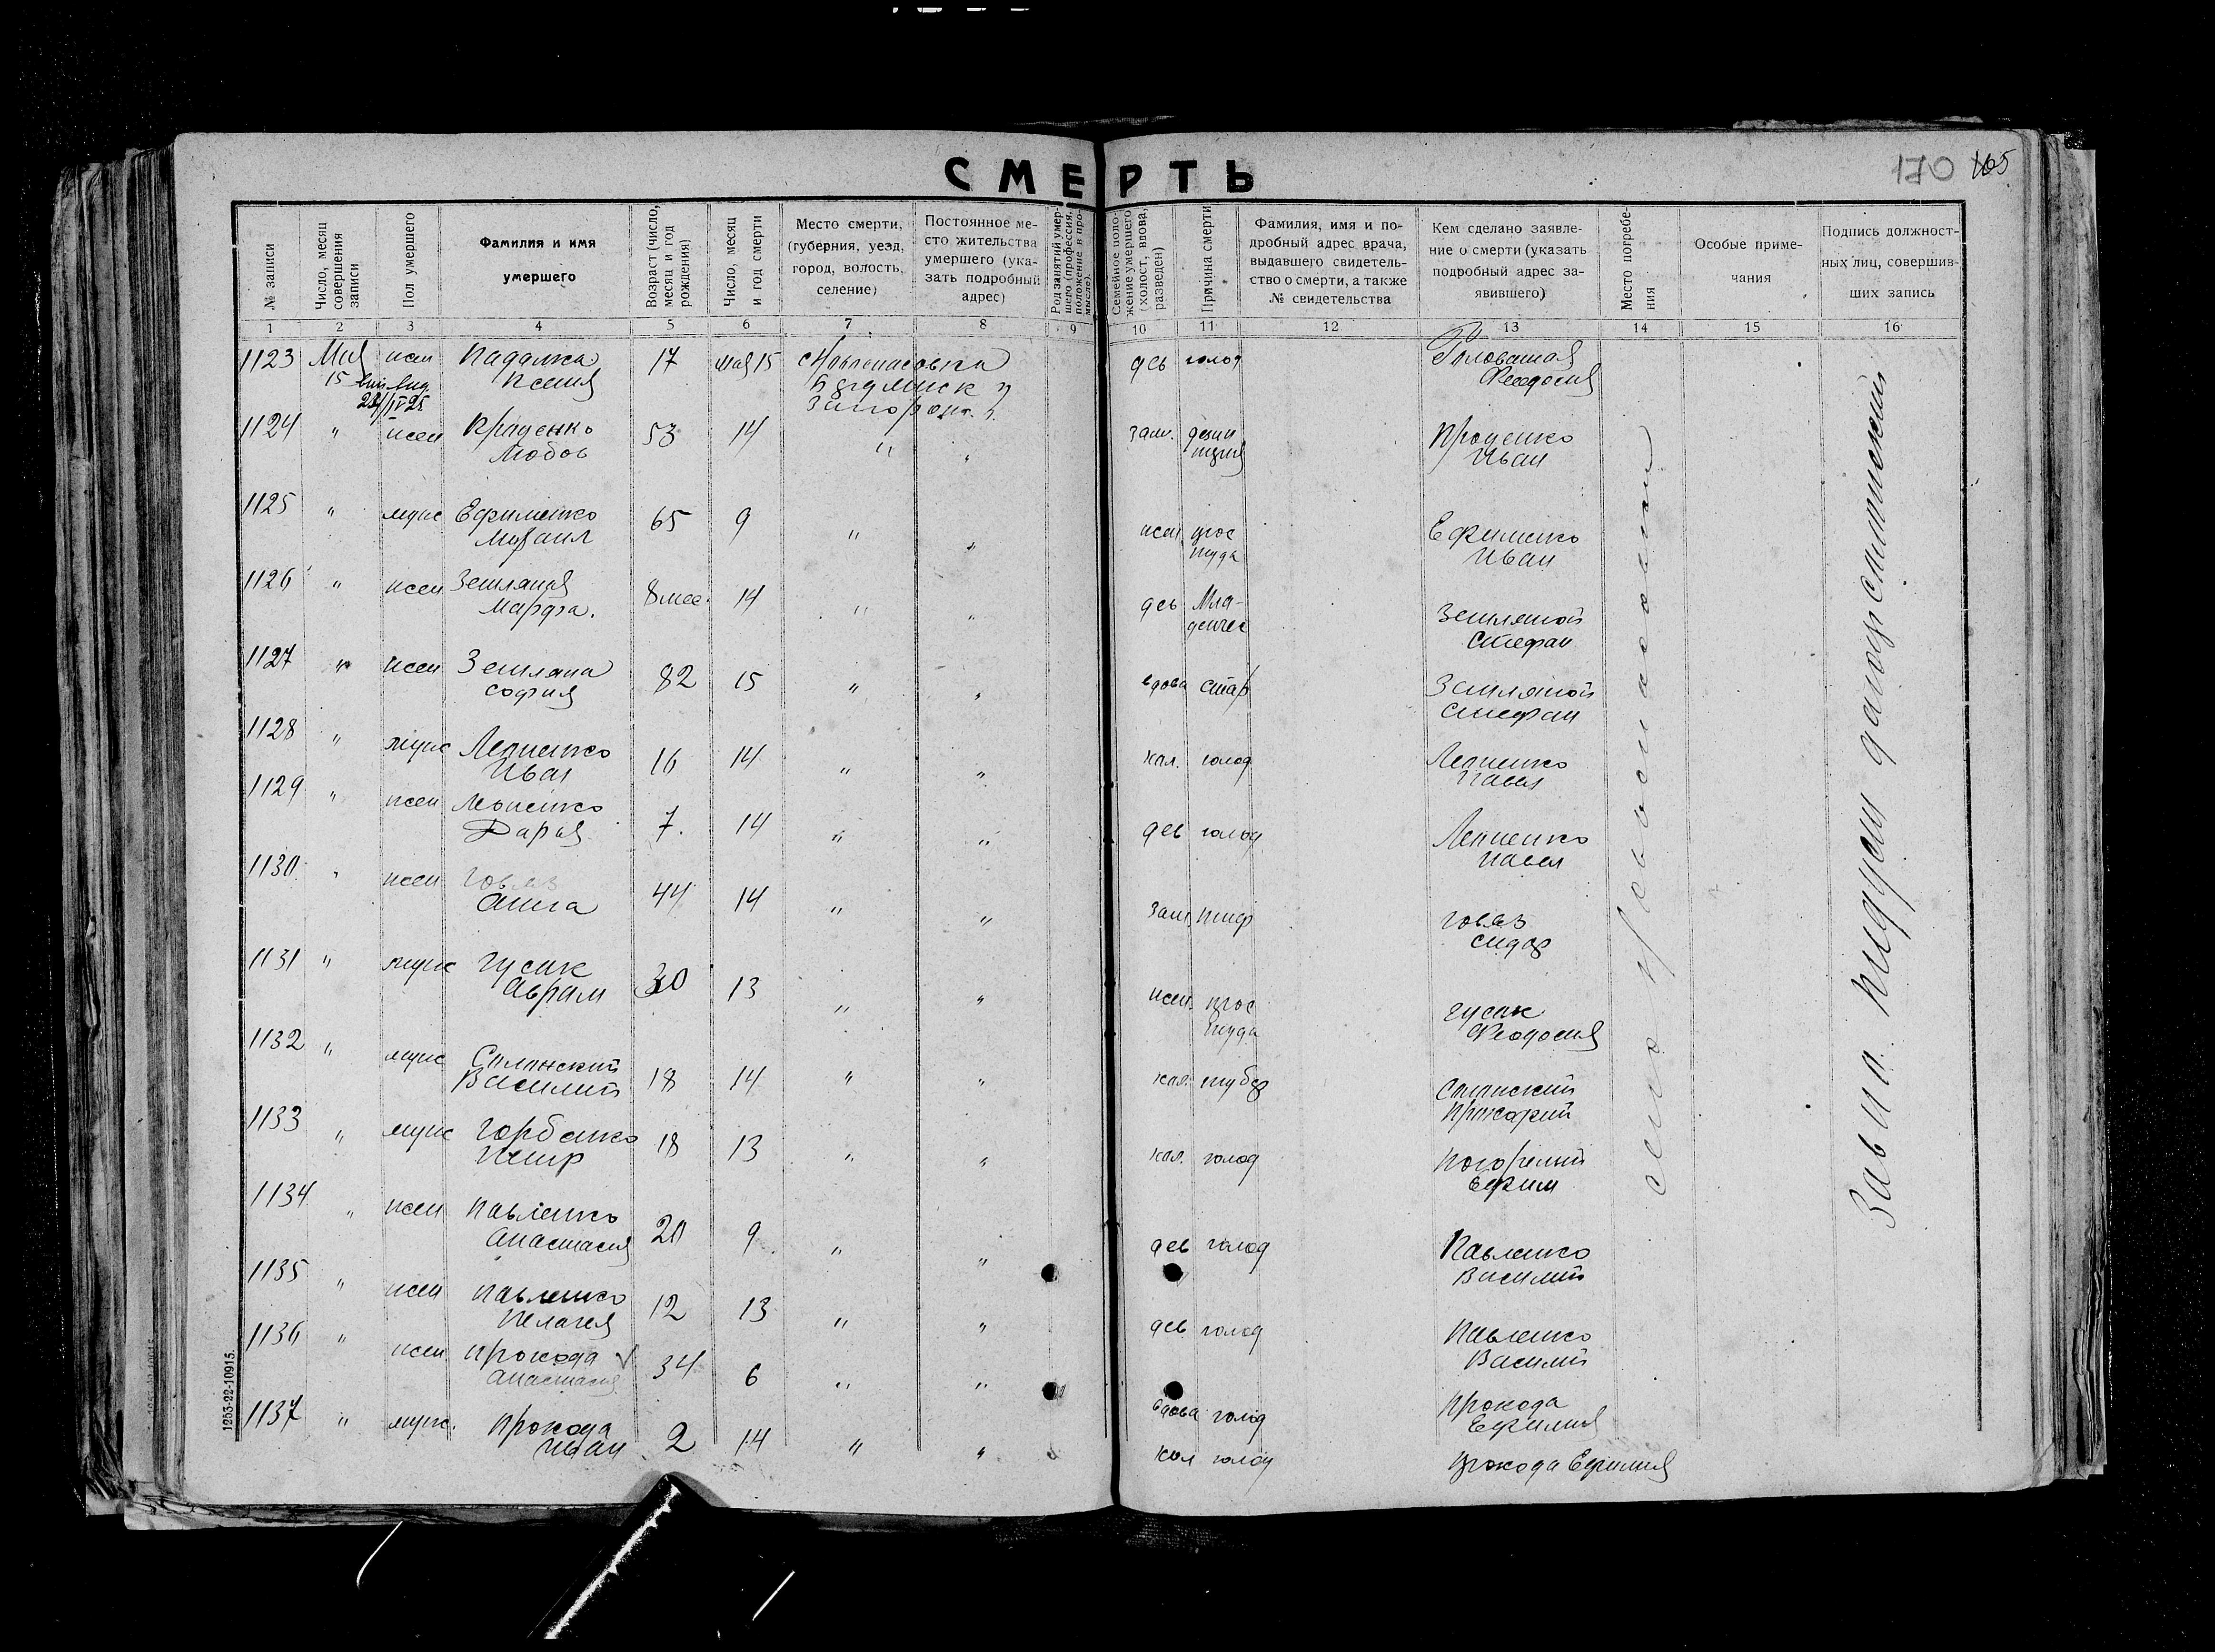 СМЕРТЬ
170 165
№ записи
Число, месяц совершения записи
Пол умершего
Фамилия и имя умершего
Возраст (число, месяц и год рождения)
Число, месяц и год смерти
Место смерти, (губерния, уезд, город, волость, селение)
Постоянное место жительства умершего (указать подробный адрес)
Род занятий умершего (профессия, положение в промысле).
Семейное положение умершего (холост, вдова, разведен)
Причина смерти
Фамилия, имя и подробный адрес врача, выдавшего свидетельство о смерти, а также № свидетельства
Кем сделано заявление о смерти (указать подробный адрес заявившего)
Место погребения
Особые примечания
Подпись должностных лиц, совершивших запись
1 2 3 4 5 6 7 8 9 10 11 12 13 14 15 16
1123 Мая 15 жен Ксения 17 мая 15 дев голод Феодосия
1124 " жен Проценко Любов 53 14 " " зам. Проценко Иван
1125 " муж Ефименко Михаил 65 9 " " жен Ефименко Иван
1126 " жен Земляная Марфа. 8 мес. 14 " " дев Младенчес Земляной Стефан
1127 " жен Земляна София 82 15 " " вдова стар Земляной Стефан
1128 " муж Лепненко Иван 16 14 " " хол. голод Лепненко Павел
1129 " жен Дарья 7. 14 " " дев голод Лепненко Павел
1130 " жен Говяз Анна 44 14 " " зам тиф Говяз Сидор
1131 " муж Гусак Аврам 30 13 " " жен Гусак Феодосия
1132 " муж Василий 18 14 " " хол. тубер
1133 " муж Горбенко Петр 18 13 " " хол. голод Погорелый Ефим
1134 " жен Павленко Анастасия 20 9 " " дев голод Павленко Василий
1135 " жен Павленко Пелагея 12 13 " " дев голод Павленко Василий
1136 " жен Прокода Анастасия 34 6 " " вдова голод Прокода Ефимия
1137 " муж. Прокода Иван 2 14 " " хол голод Прокода Ефимия
1253-22-10915.